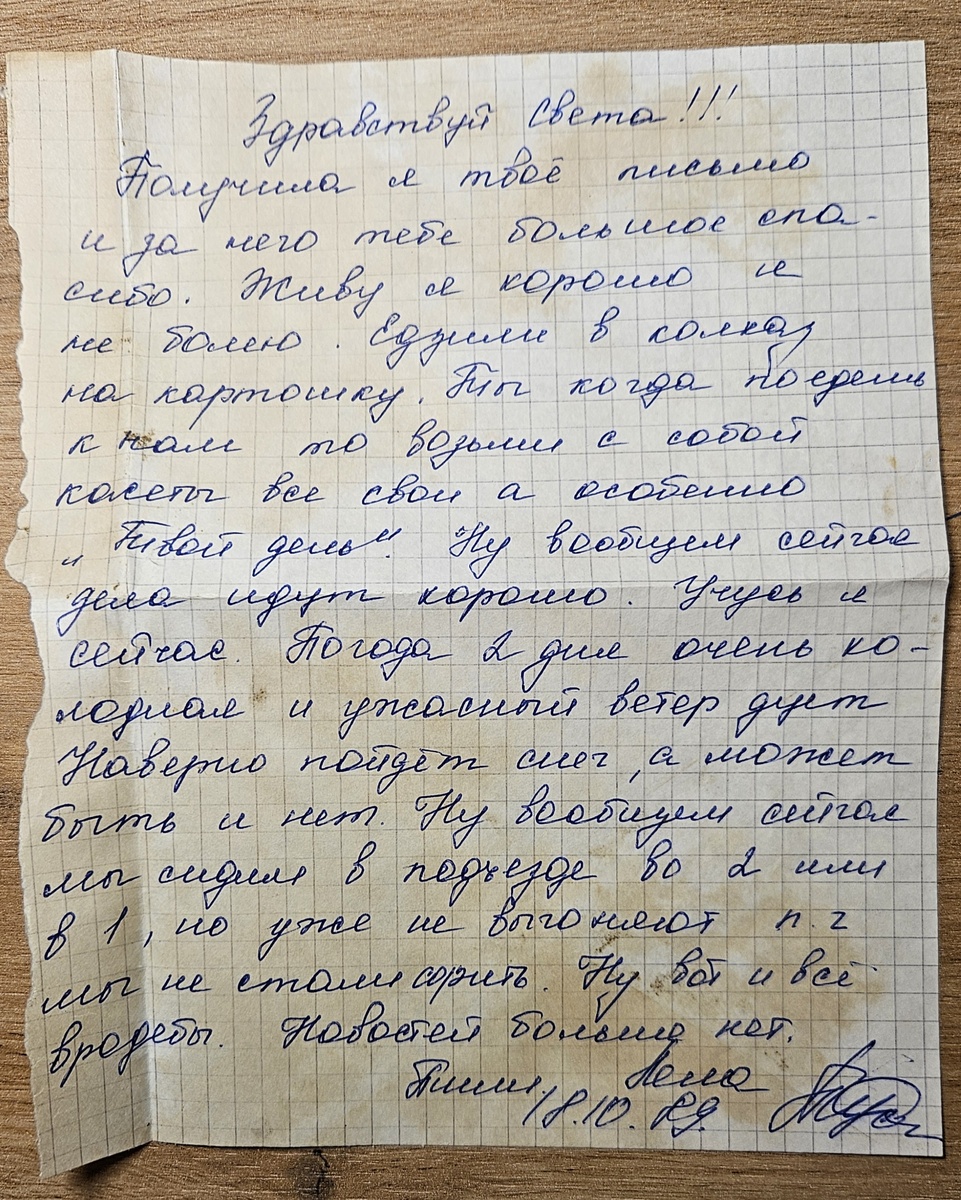 Здравствуй Света!!!
Получила я твоё письмо
и за него тебе большое спа-
сибо. Живу я хорошо и
не болею. Ездили в колхоз
на картошку. Ты когда поедешь
к нам то возьми с собой
касеты все свои а особенно
„Твой день". Ну вообщем сейчас
дела идут хорошо. Учусь я
сейчас. Погода 2 дня очень хо-
лодная и ужасный ветер дует
Наверно пойдёт снег, а может
быть и нет. Ну вообщем сейчас
мы сидим в подъезде во 2 или
в 1, но уже не выгоняют п.ч
мы не стали сорить. Ну вот и всё
вродебы. Новостей больше нет.
Пиши. Лена
18.10.89.